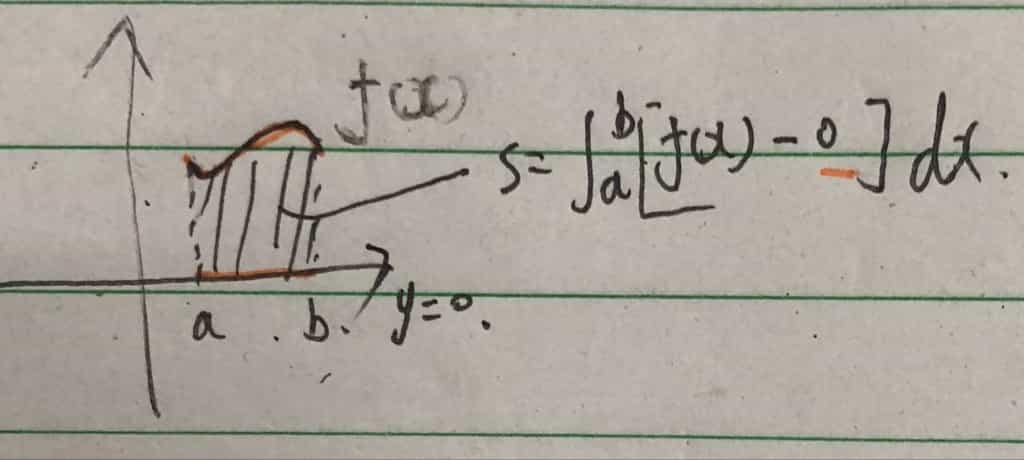 f(x)
S= ∫_a^b [f(x) - 0] dx.
a . b. y=0.